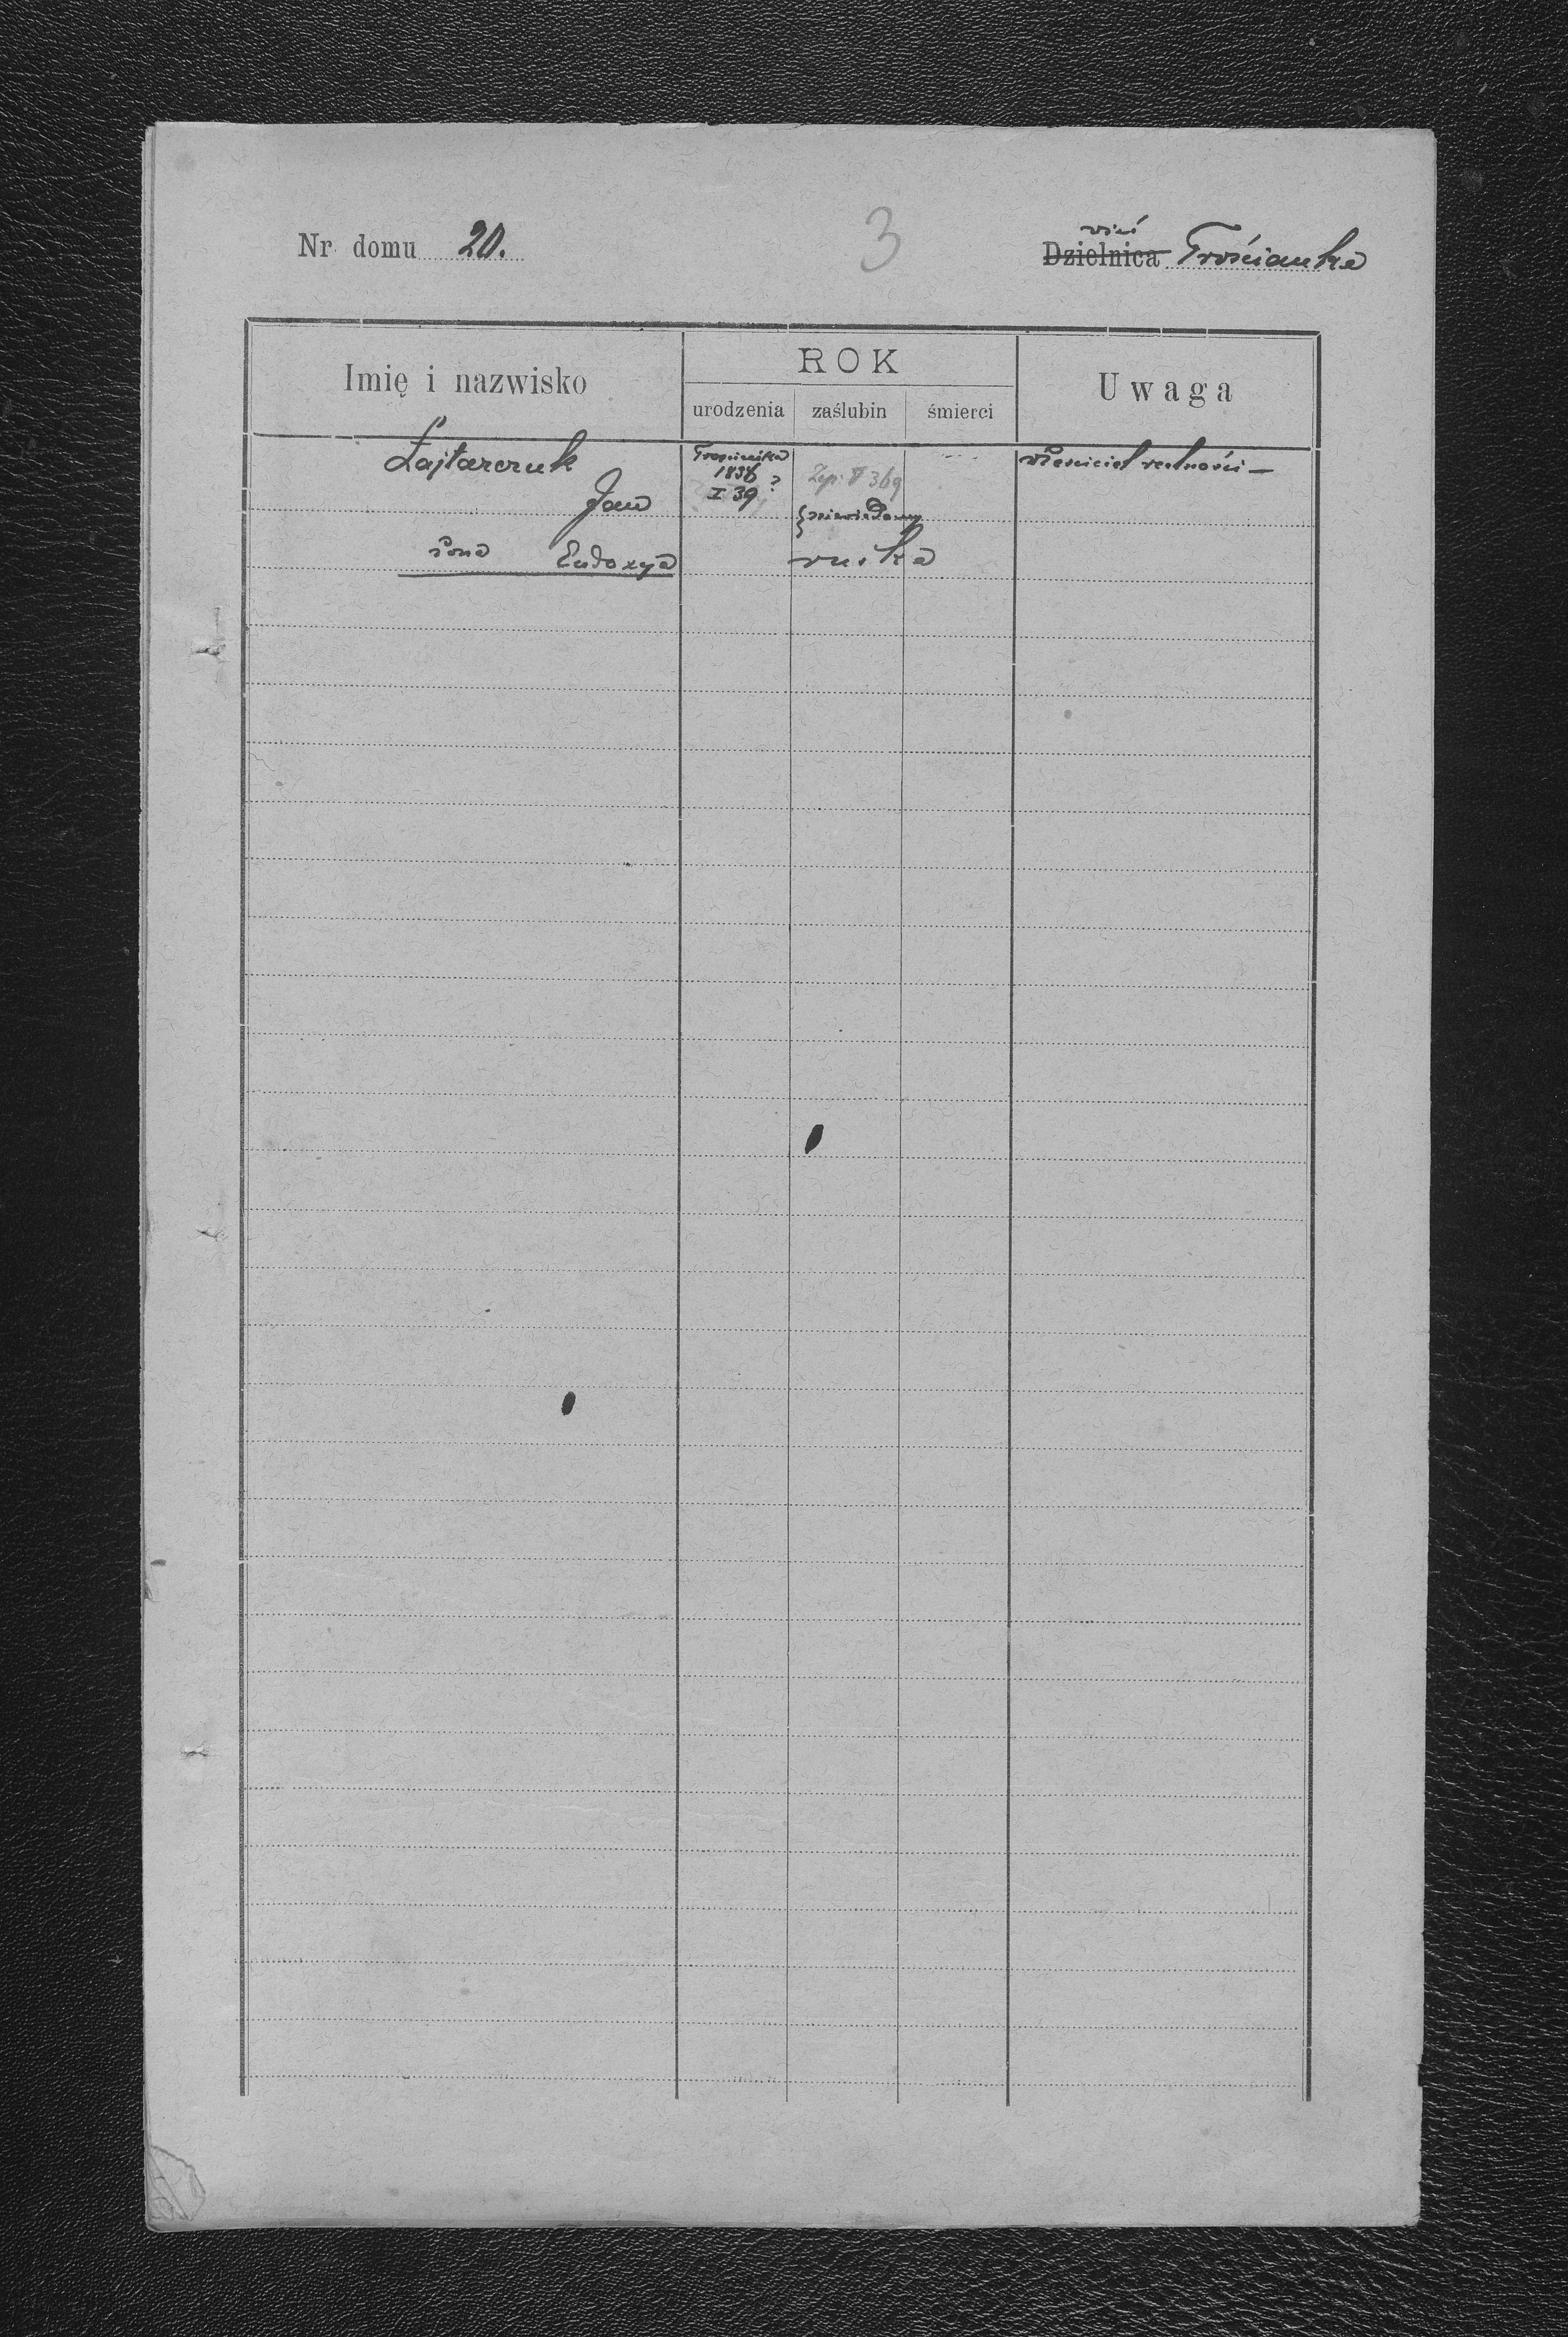 Nr domu 20.
3
wieś
Dzielnica Trościanka
Imię i nazwisko
ROK
Uwaga
urodzenia zaślubin śmierci
Łajtarczuk
Jan
Trościanka
1838
I 39 ?
Zap. V 369
właściciel realności —
niewiadomy
żona Eudoxya